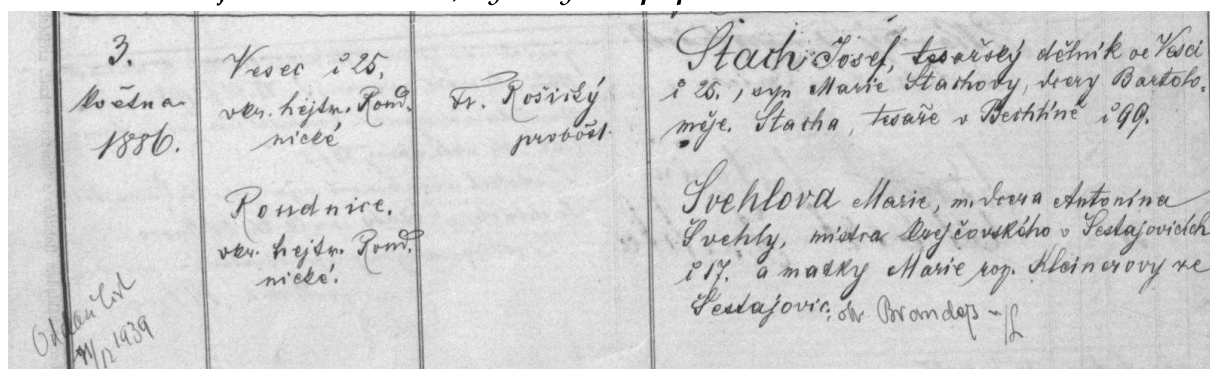 3.
května
1886.
Vesec č 25.
okr. hejtm. Roud-
nické
Roudnice.
okr. hejtm. Roud-
nické.
Fr. Rošický
probošt.
Stach Josef, tesařský dělník ve Vesci
č 25., syn Marie Stachovy, dcery Bartolo-
měje Stacha, tesaře v Bechlíně č 99.
Švehlova Marie, m. dcera Antonína
Švehly, mistra krejčovského v Šestajovicích
č 17. a matky Marie roz. Kleinerovy ze
Šestajovic, okr Brandýs
Oddací list
12 1939